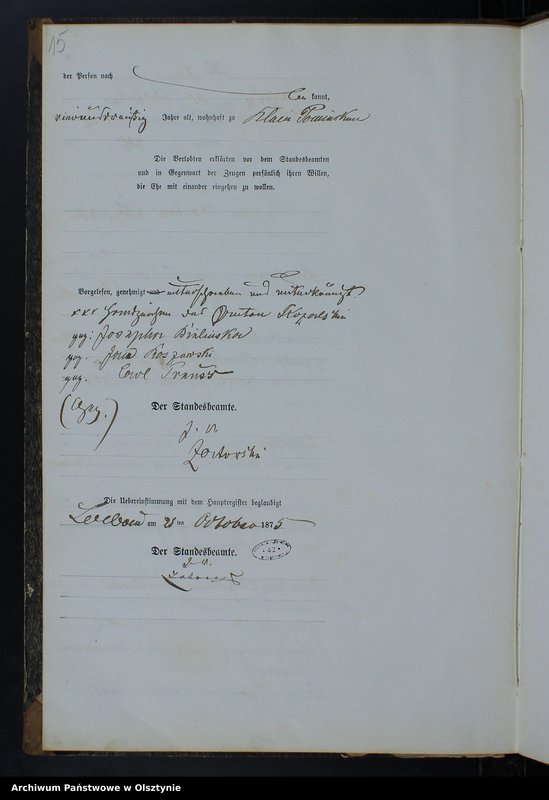 15
der Person nach
kannt,
vierunddreißig Jahre alt, wohnhaft zu Klein
Die Verlobten erklärten vor dem Standesbeamten
und in Gegenwart der Zeugen persönlich ihren Willen,
die Ehe mit einander eingehen zu wollen.
Vorgelesen, genehmigt und unterschrieben und unterkreuzt
xxx Handzeichen des
gez: Josephine Bielinska
gez.
gez. Carl
(Gez.)
Der Standesbeamte.
J. V.
Die Uebereinstimmung mit dem Hauptregister beglaubigt
am 21 ten October 1875
Der Standesbeamte.
J. V.
42
Archiwum Państwowe w Olsztynie